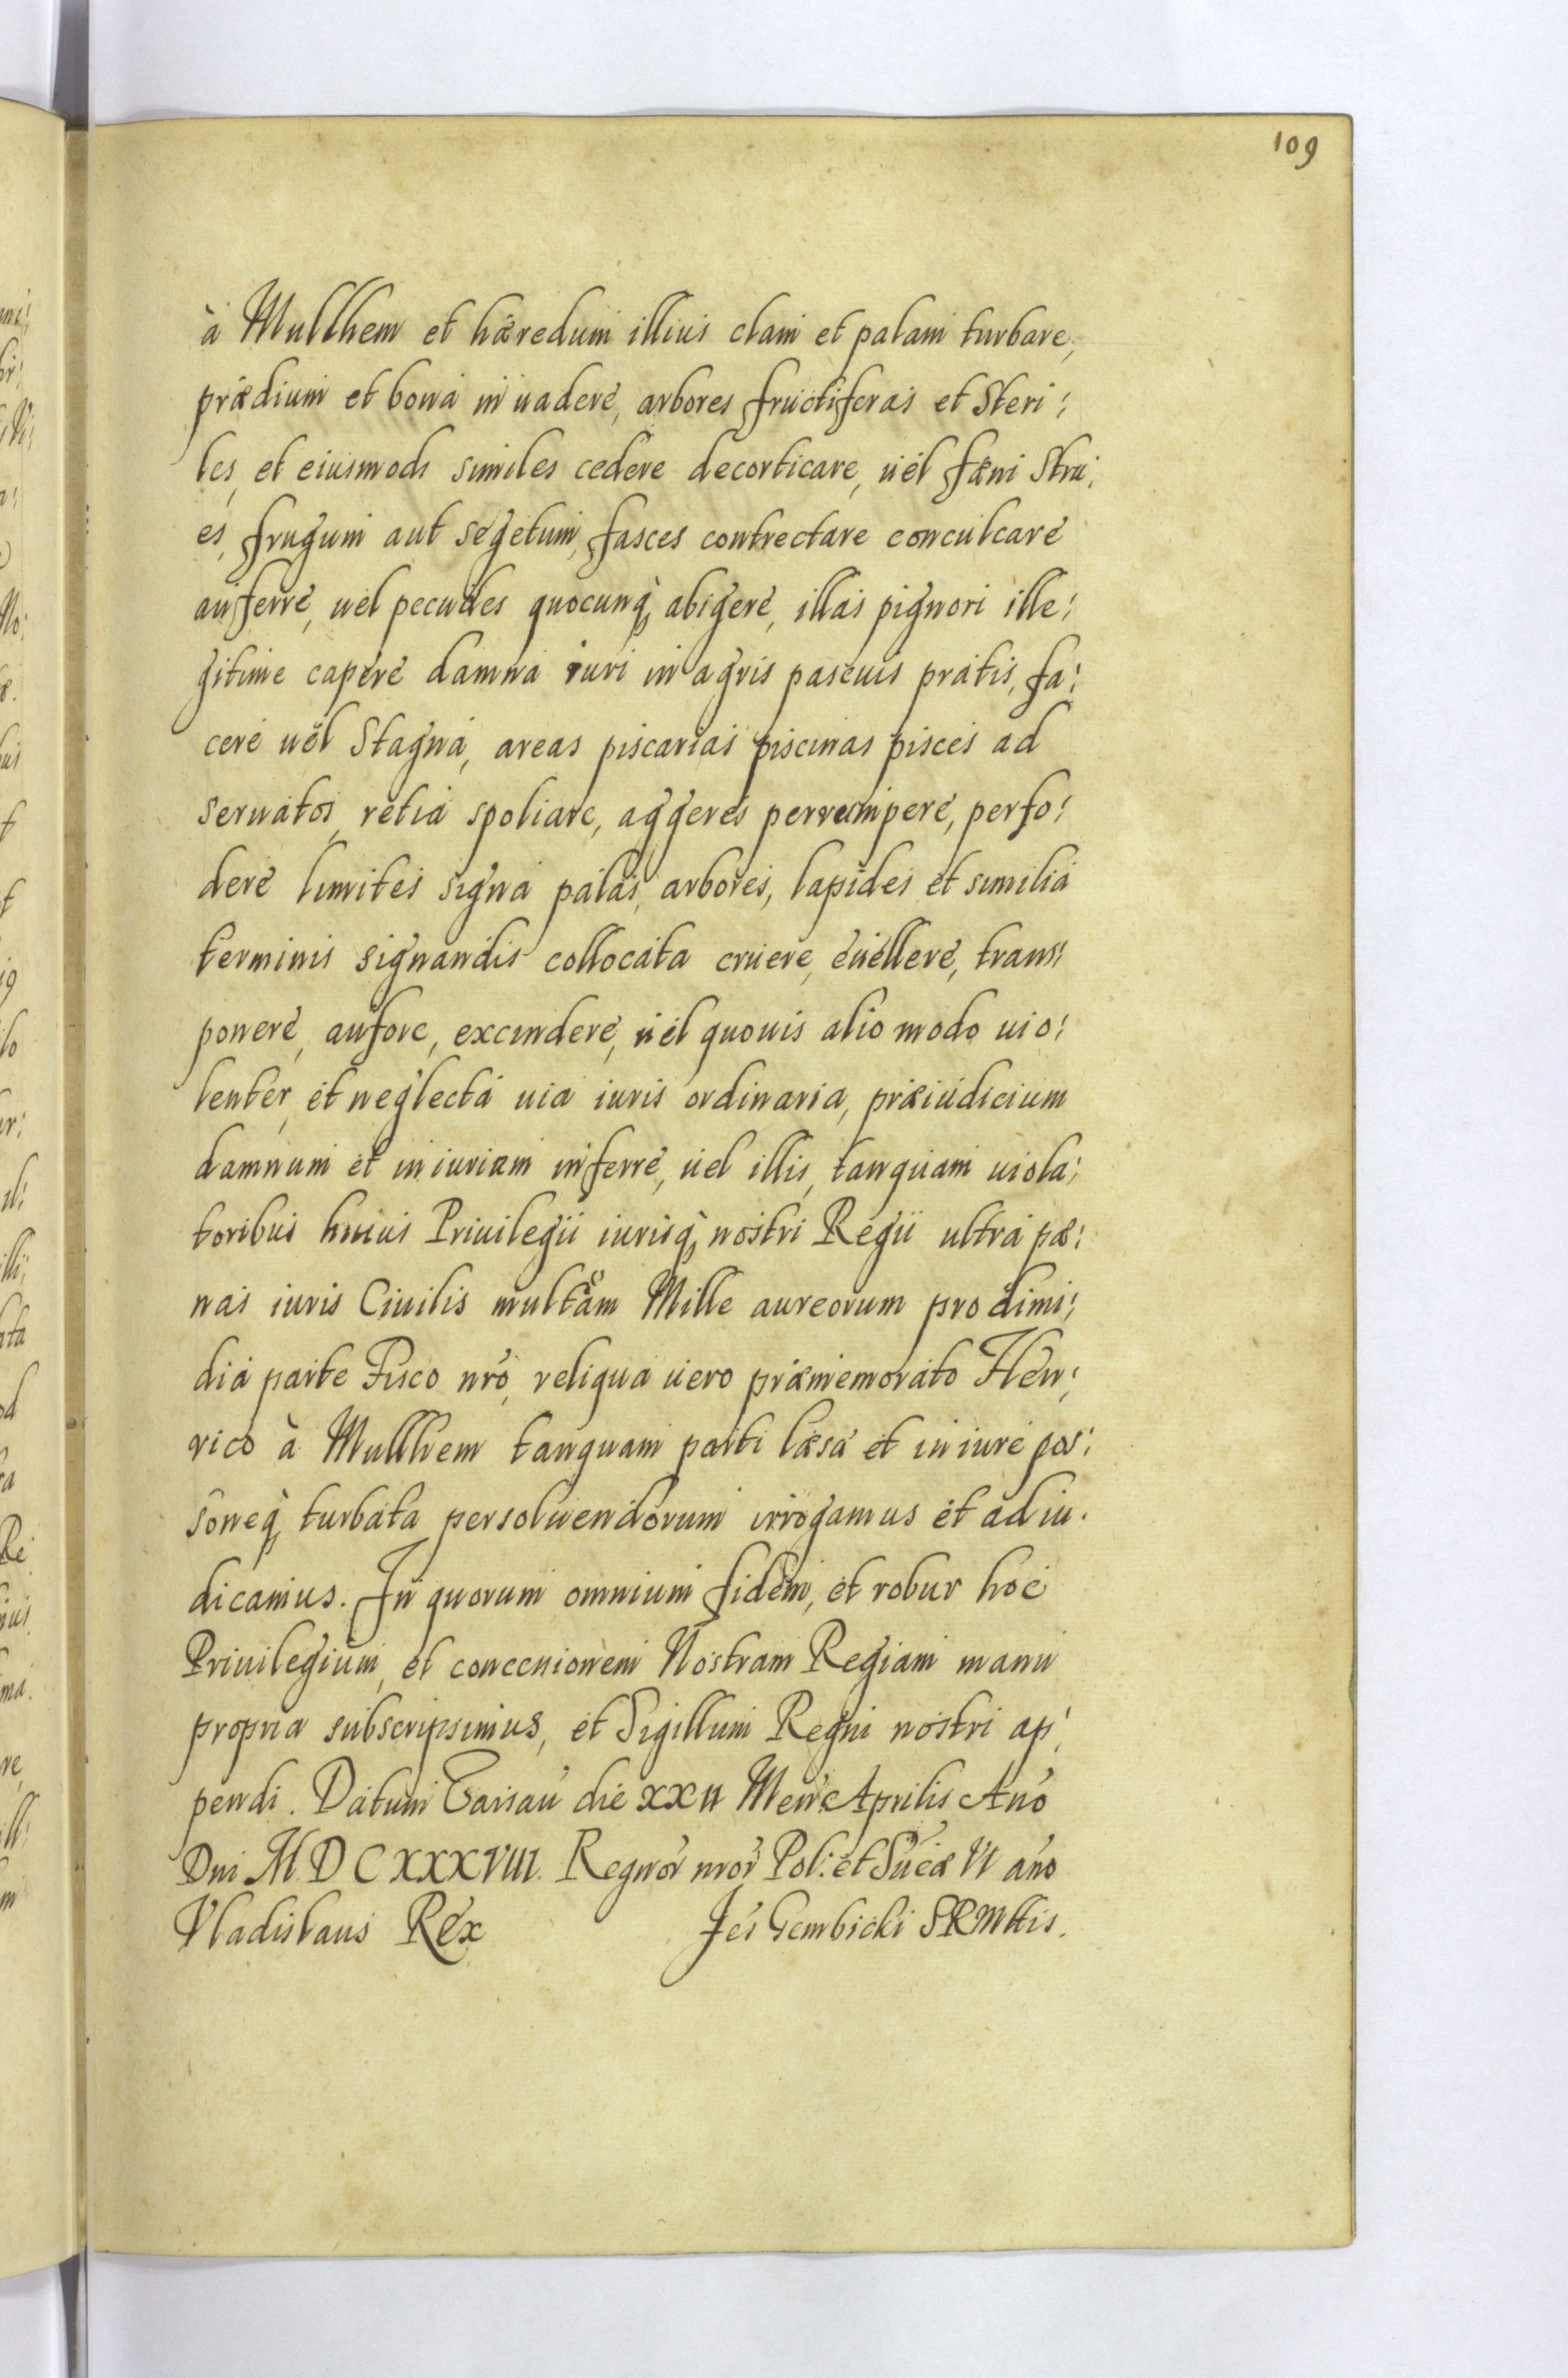 109
à Mullhem et hæredum illius clam et palam turbare,
prædium et bona inuadere, arbores fructiferas et Steri:
les, et eiusmodi similes cedere decorticare, uel fæni Stru:
es, frugum aut segetum, fasces contrectare conculcare
auferre, uel pecudes quocunq, abigere, illas pignori ille:
gitime capere damna iuri in agris pascuis pratis, fa:
cere uel Stagna, areas piscarias piscinas pisces ad
seruatos, retia spoliare, aggeres perrumpere, perfo:
dere limites signa palas, arbores, lapides et similia
terminis signandis collocata eruere, euellere, trans:
ponere, aufore, excindere, uel quouis alio modo uio:
lenter, et neglecta uia iuris ordinaria, præiudicium
damnum et iniuriam inferre, uel illis, tanquam uiola:
toribus huius Priuilegii iurisq, nostri Regii ultra pæ:
nas iuris Ciuilis multam Mille aureorum pro dimi:
dia parte Fisco nrô, reliqua uero præmemorato Hen:
rico à Mullhem tanquam parti læsa et in iure pos:
soneq, turbata persoluendorum irrogamus et adiu.
dicamus. In quorum omnium fidem, et robur hoc
Priuilegium, et Nostram Regiam manu
propria subscripsimus, et Sigillum Regni nostri ap:
pendi. Datum Varsau die XXII Mens Aprilis Anô
Dni M.D C XXXVIII. Regnor nror Pol: et Sueæ VI anô
Vladislaus Rex Jes Gembicki SRMttis.